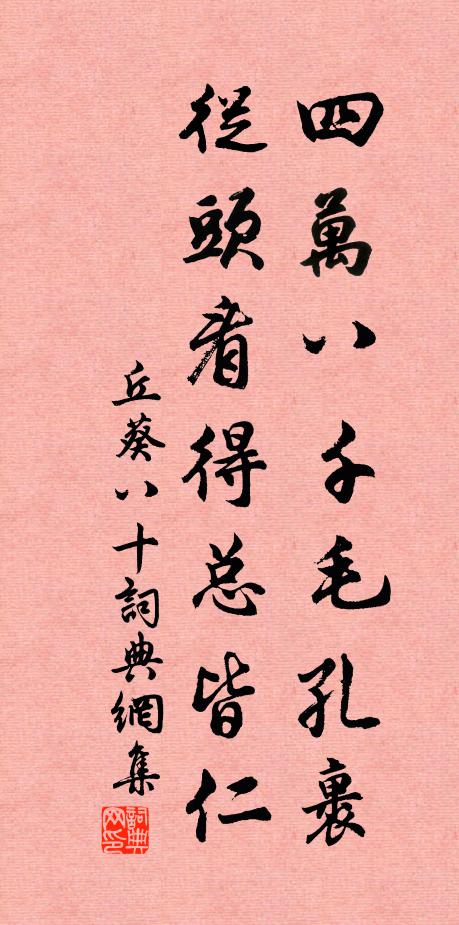 四萬八千毛孔裏
從頭看得总皆仁
丘葵八十詞典網集
詞典網印